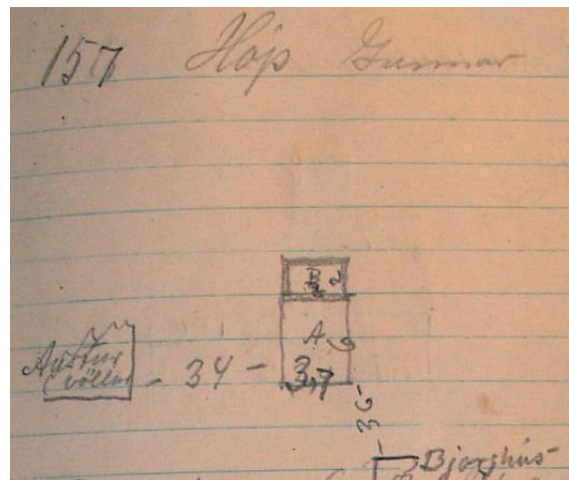 157 Hóp Gunnar
B 2
A 6
Austur
völlur
- 34 -
3,7
- 36 -
Bjarghús